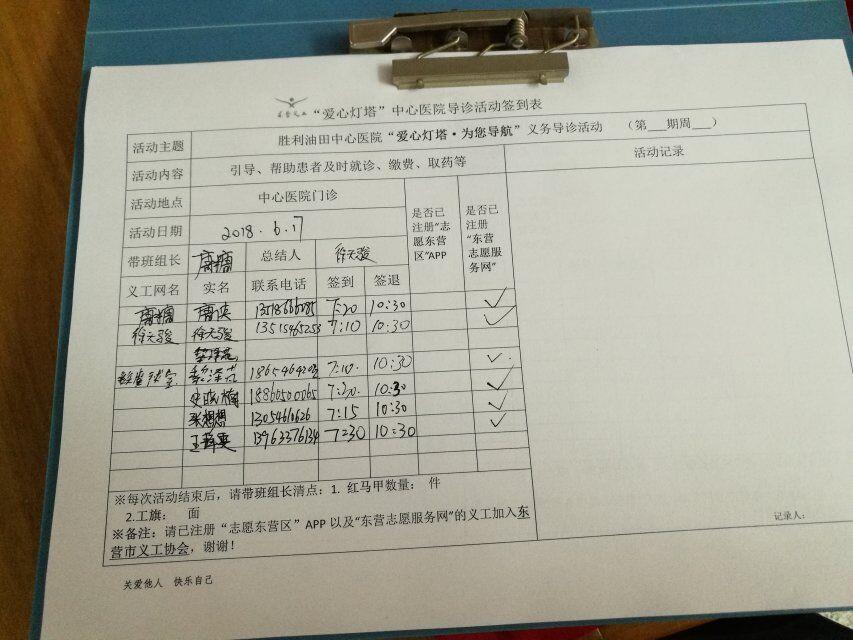 “爱心灯塔”中心医院导诊活动签到表
活动主题 胜利油田中心医院“爱心灯塔·为您导航”义务导诊活动 （第___期周___）
活动内容 引导、帮助患者及时就诊、缴费、取药等 活动记录
活动地点 中心医院门诊 是否已注册“志愿东营区”APP 是否已注册“东营志愿服务网”
活动日期 2018.6.17
带班组长 总结人 徐天骏
义工网名 实名 联系电话 签到 签退
7:20 10:30 ✓
徐天骏 徐天骏 13515465253 7:10 10:30 ✓
7:10 10:30 ✓
18860500065 7:20 10:30 ✓
张想想 13054610626 7:15 10:30 ✓
13963376134 7:30 10:30
※每次活动结束后，请带班组长清点：1. 红马甲数量： 件
2.工旗： 面
※备注：请已注册“志愿东营区”APP 以及“东营志愿服务网”的义工加入东
营市义工协会，谢谢！
记录人：
关爱他人 快乐自己